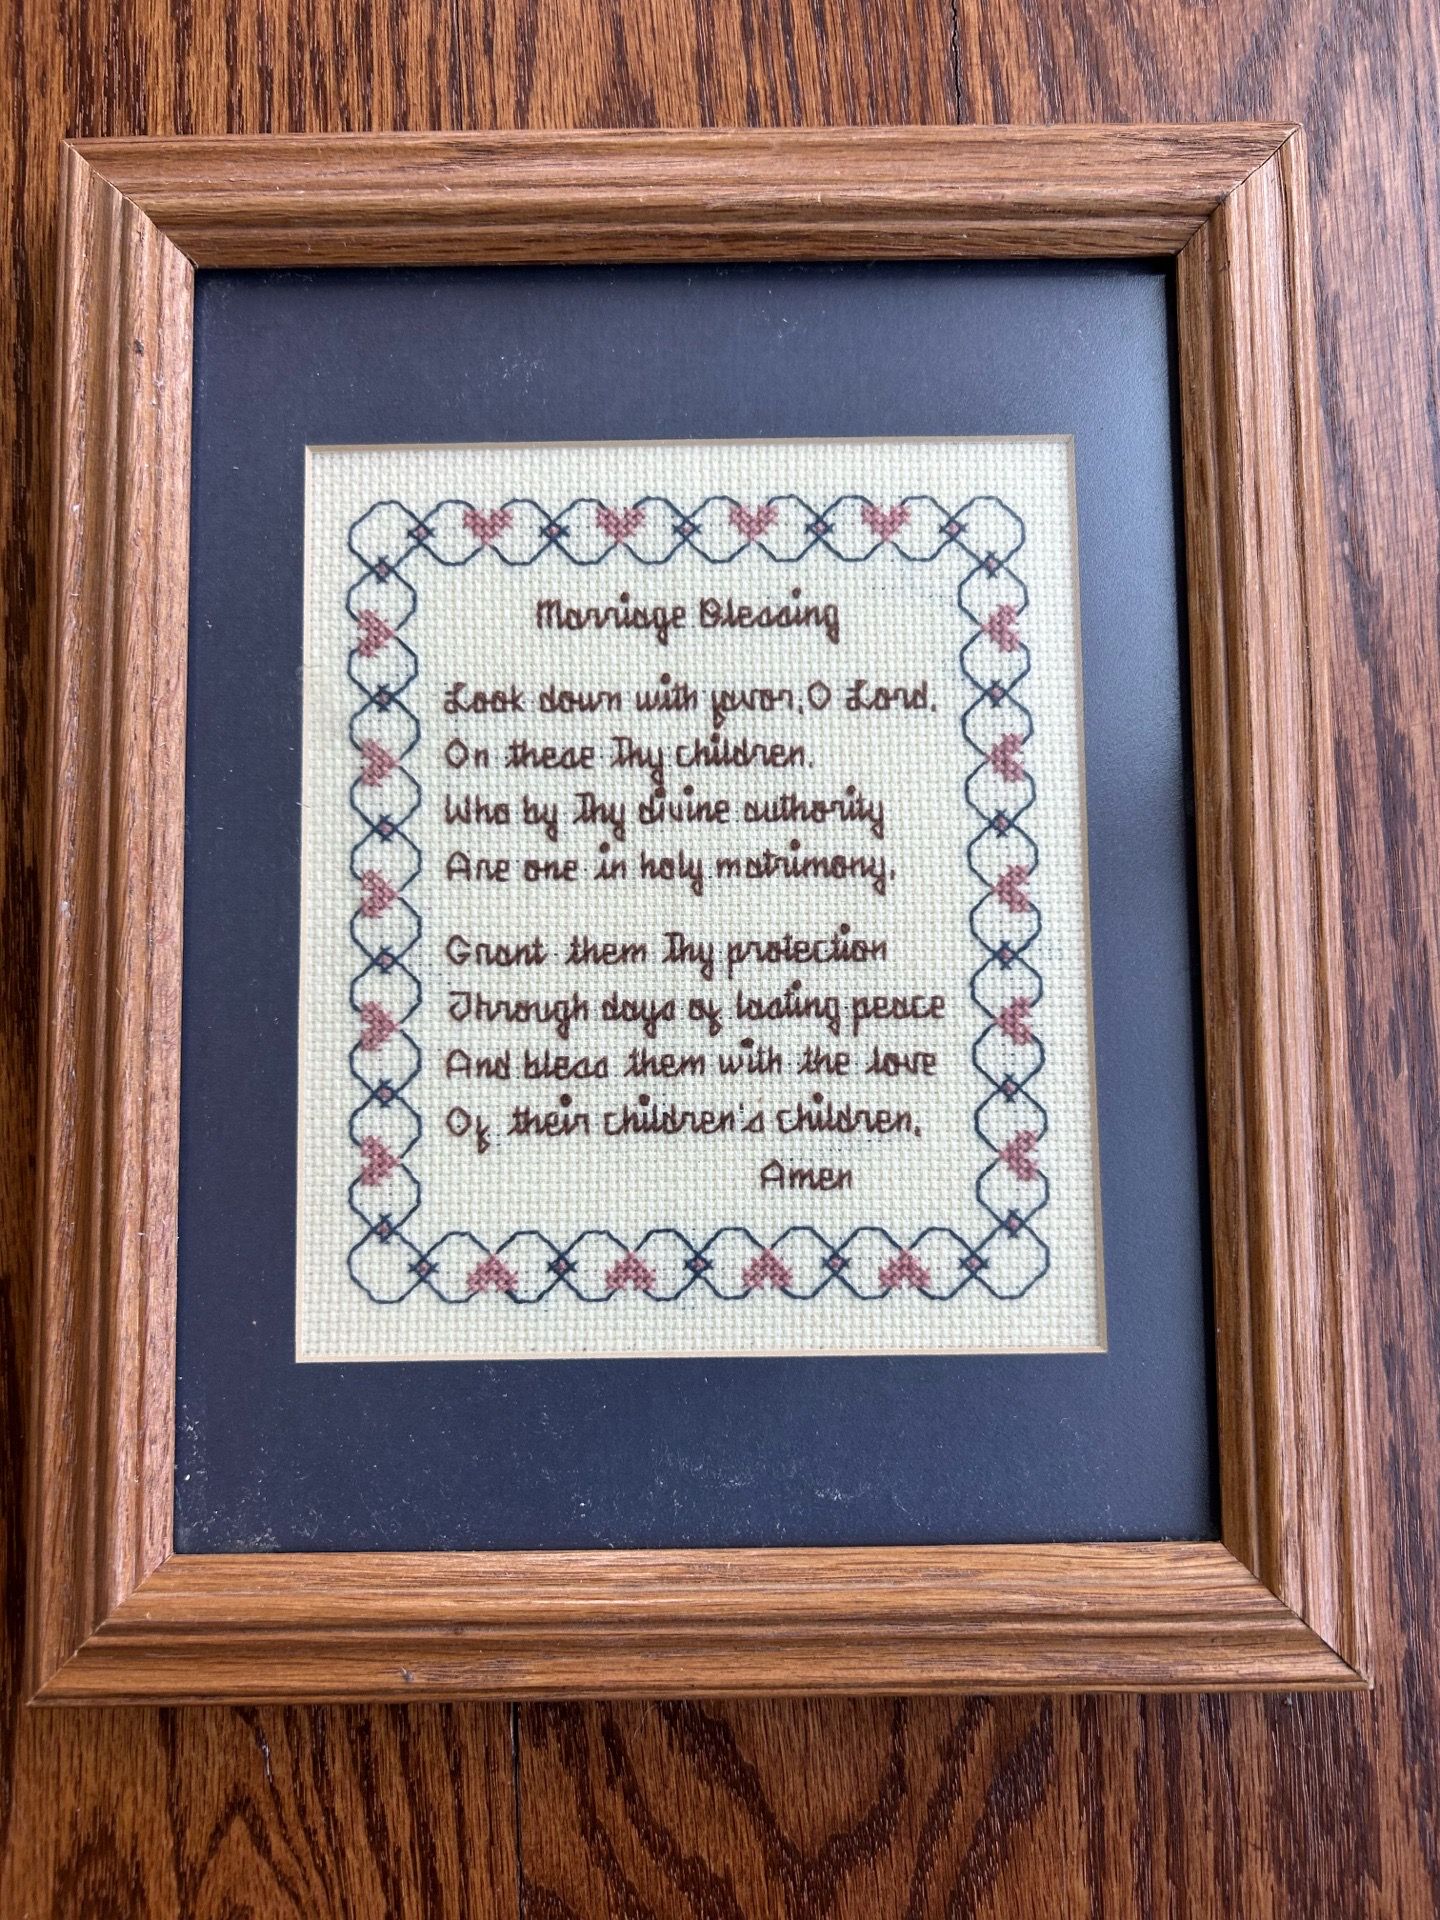 Marriage Blessing
Look down with favor, O Lord,
On these Thy children.
Who by Thy divine authority
Are one in holy matrimony.
Grant them Thy protection
Through days of lasting peace
And bless them with the love
Of their children's children.
Amen